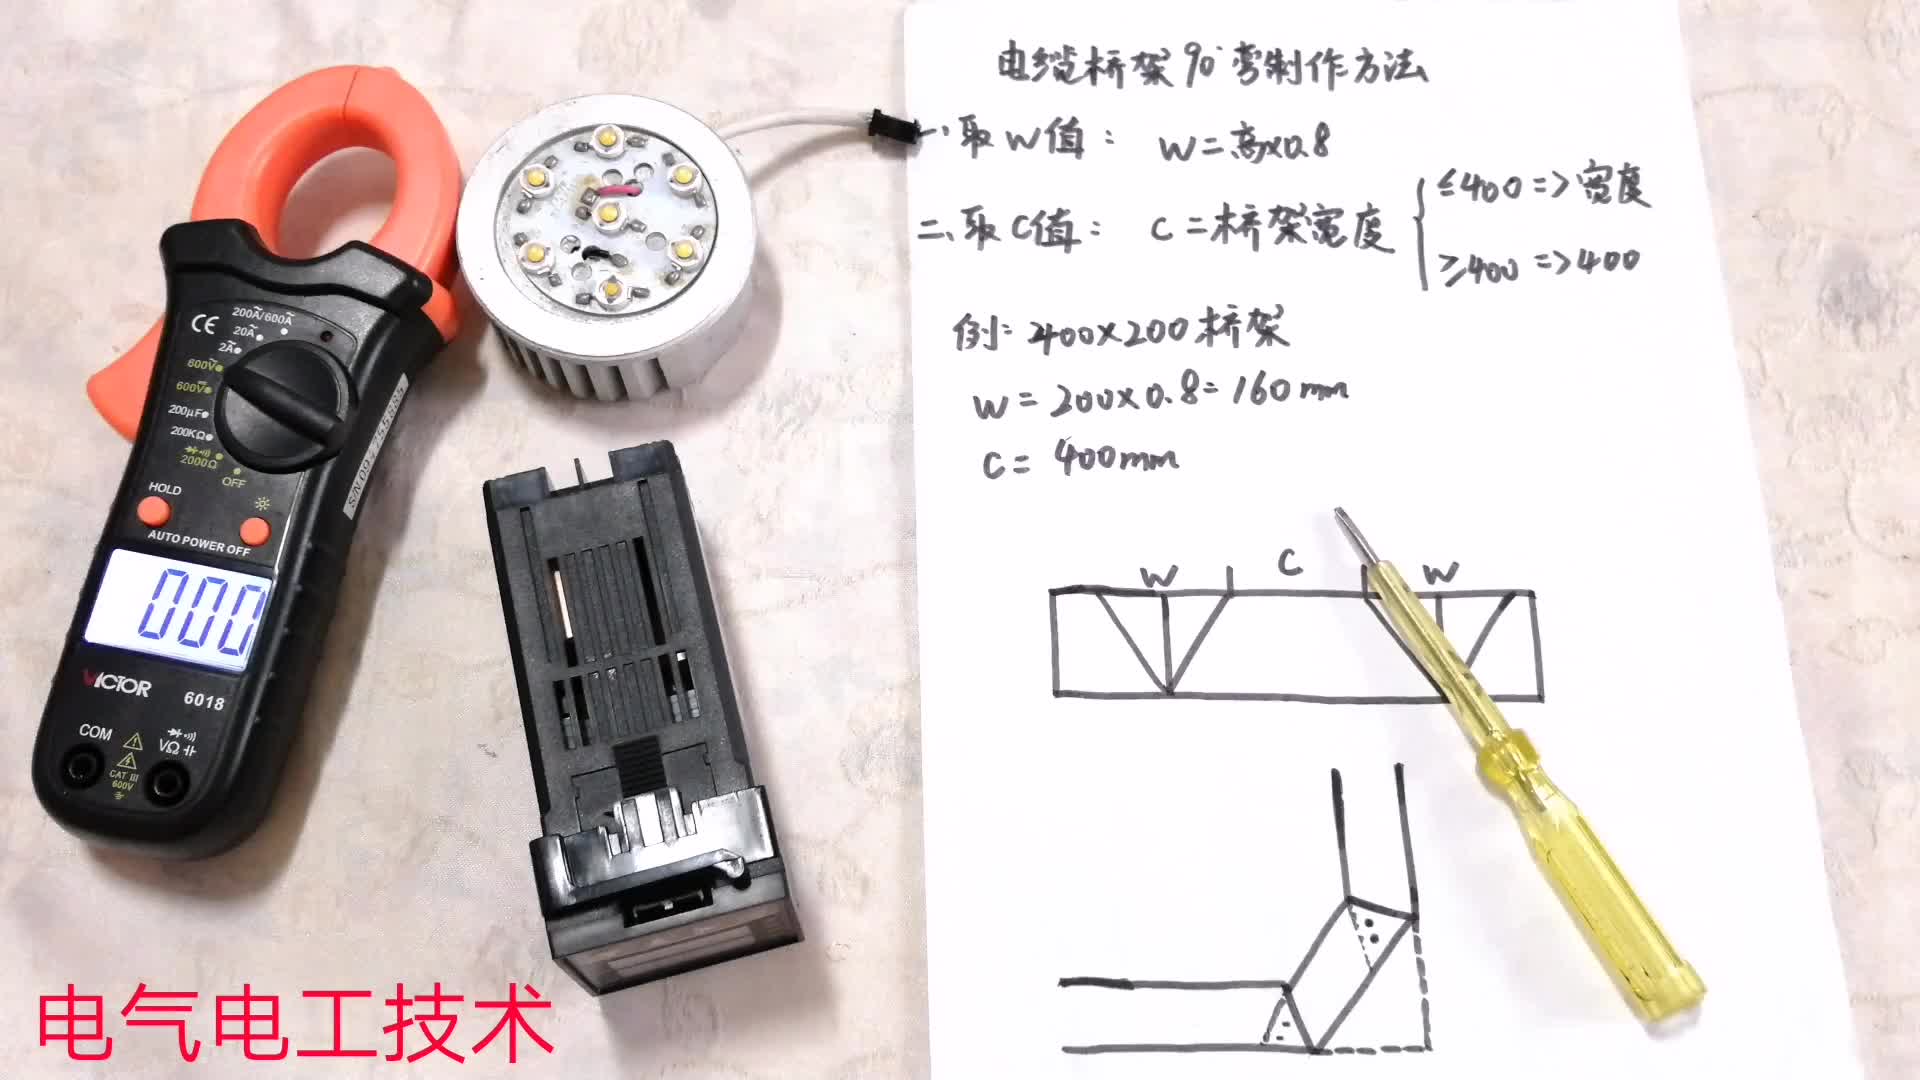 电缆桥架90°弯制作方法
一、取W值: W=高×0.8
二、取C值: C=桥架宽度
≤400=>宽度
≥400=>400
例: 400×200桥架
W=200×0.8=160mm
C=400mm
W C W
CE
200A/600A
20A
2A
600V
600V
200μF
200KΩ
2000Ω
OFF
HOLD
AUTO POWER OFF
000
VICTOR
6018
COM
VΩ
CAT III
600V
电气电工技术